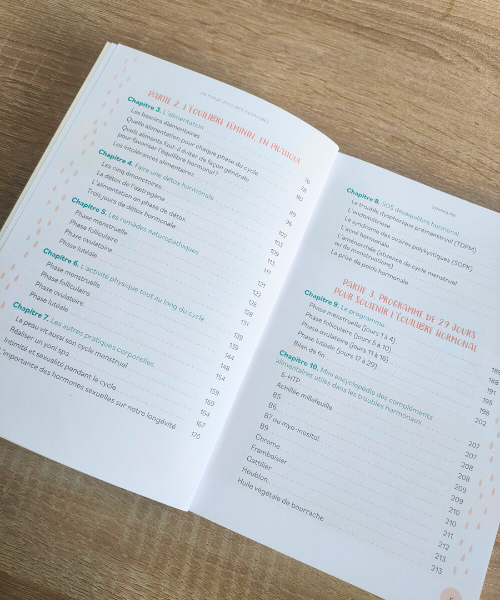 EN PHASE AVEC MES HORMONES
PARTIE 2. L'ÉQUILIBRE FÉMININ, EN PRATIQUE
Chapitre 3. L'alimentation 76
Les besoins élémentaires 78
Quelle alimentation pour chaque phase du cycle 80
Quels aliments faut-il éviter de façon générale
pour favoriser l'équilibre hormonal ? 89
Les intolérances alimentaires 96
Chapitre 4. Faire une détox hormonale 102
Les cinq émonctoires 103
La détox de l'œstrogène 109
L'alimentation en phase de détox 113
Trois jours de détox hormonale 117
Chapitre 5. Les remèdes naturopathiques 121
Phase menstruelle 122
Phase folliculaire 126
Phase ovulatoire 128
Phase lutéale 131
Chapitre 6. L'activité physique tout au long du cycle 139
Phase menstruelle 139
Phase folliculaire 144
Phase ovulatoire 148
Phase lutéale 154
Chapitre 7. Les autres pratiques corporelles 158
La peau vit aussi son cycle menstruel 159
Réaliser un yoni spa 164
Intimité et sexualité pendant le cycle 167
L'importance des hormones sexuelles sur notre longévité 170
SOMMAIRE
Chapitre 8. SOS déséquilibre hormonal
Le trouble dysphorique prémenstruel (TDPM)
L'endométriose
Le syndrome des ovaires polykystiques (SOPK)
L'acné hormonale
L'aménorrhée (absence de cycle menstruel
ou de menstruations)
La prise de poids hormonale
PARTIE 3. PROGRAMME DE 29 JOURS
POUR SOUTENIR L'ÉQUILIBRE HORMONAL
Chapitre 9. Le programme
Phase menstruelle (jours 1 à 4) 188
Phase folliculaire (jours 5 à 10) 191
Phase ovulatoire (jours 11 à 16) 195
Phase lutéale (jours 17 à 29) 198
Bien de fin 202
Chapitre 10. Mini encyclopédie des compléments
alimentaires utiles dans les troubles hormonaux 207
5-HTP 207
Achillée millefeuille 208
B5 208
B6 209
B7 ou myo-inositol 209
B9 210
Chrome 210
Framboisier 211
Gattilier 212
Houblon 213
Huile végétale de bourrache 213
5